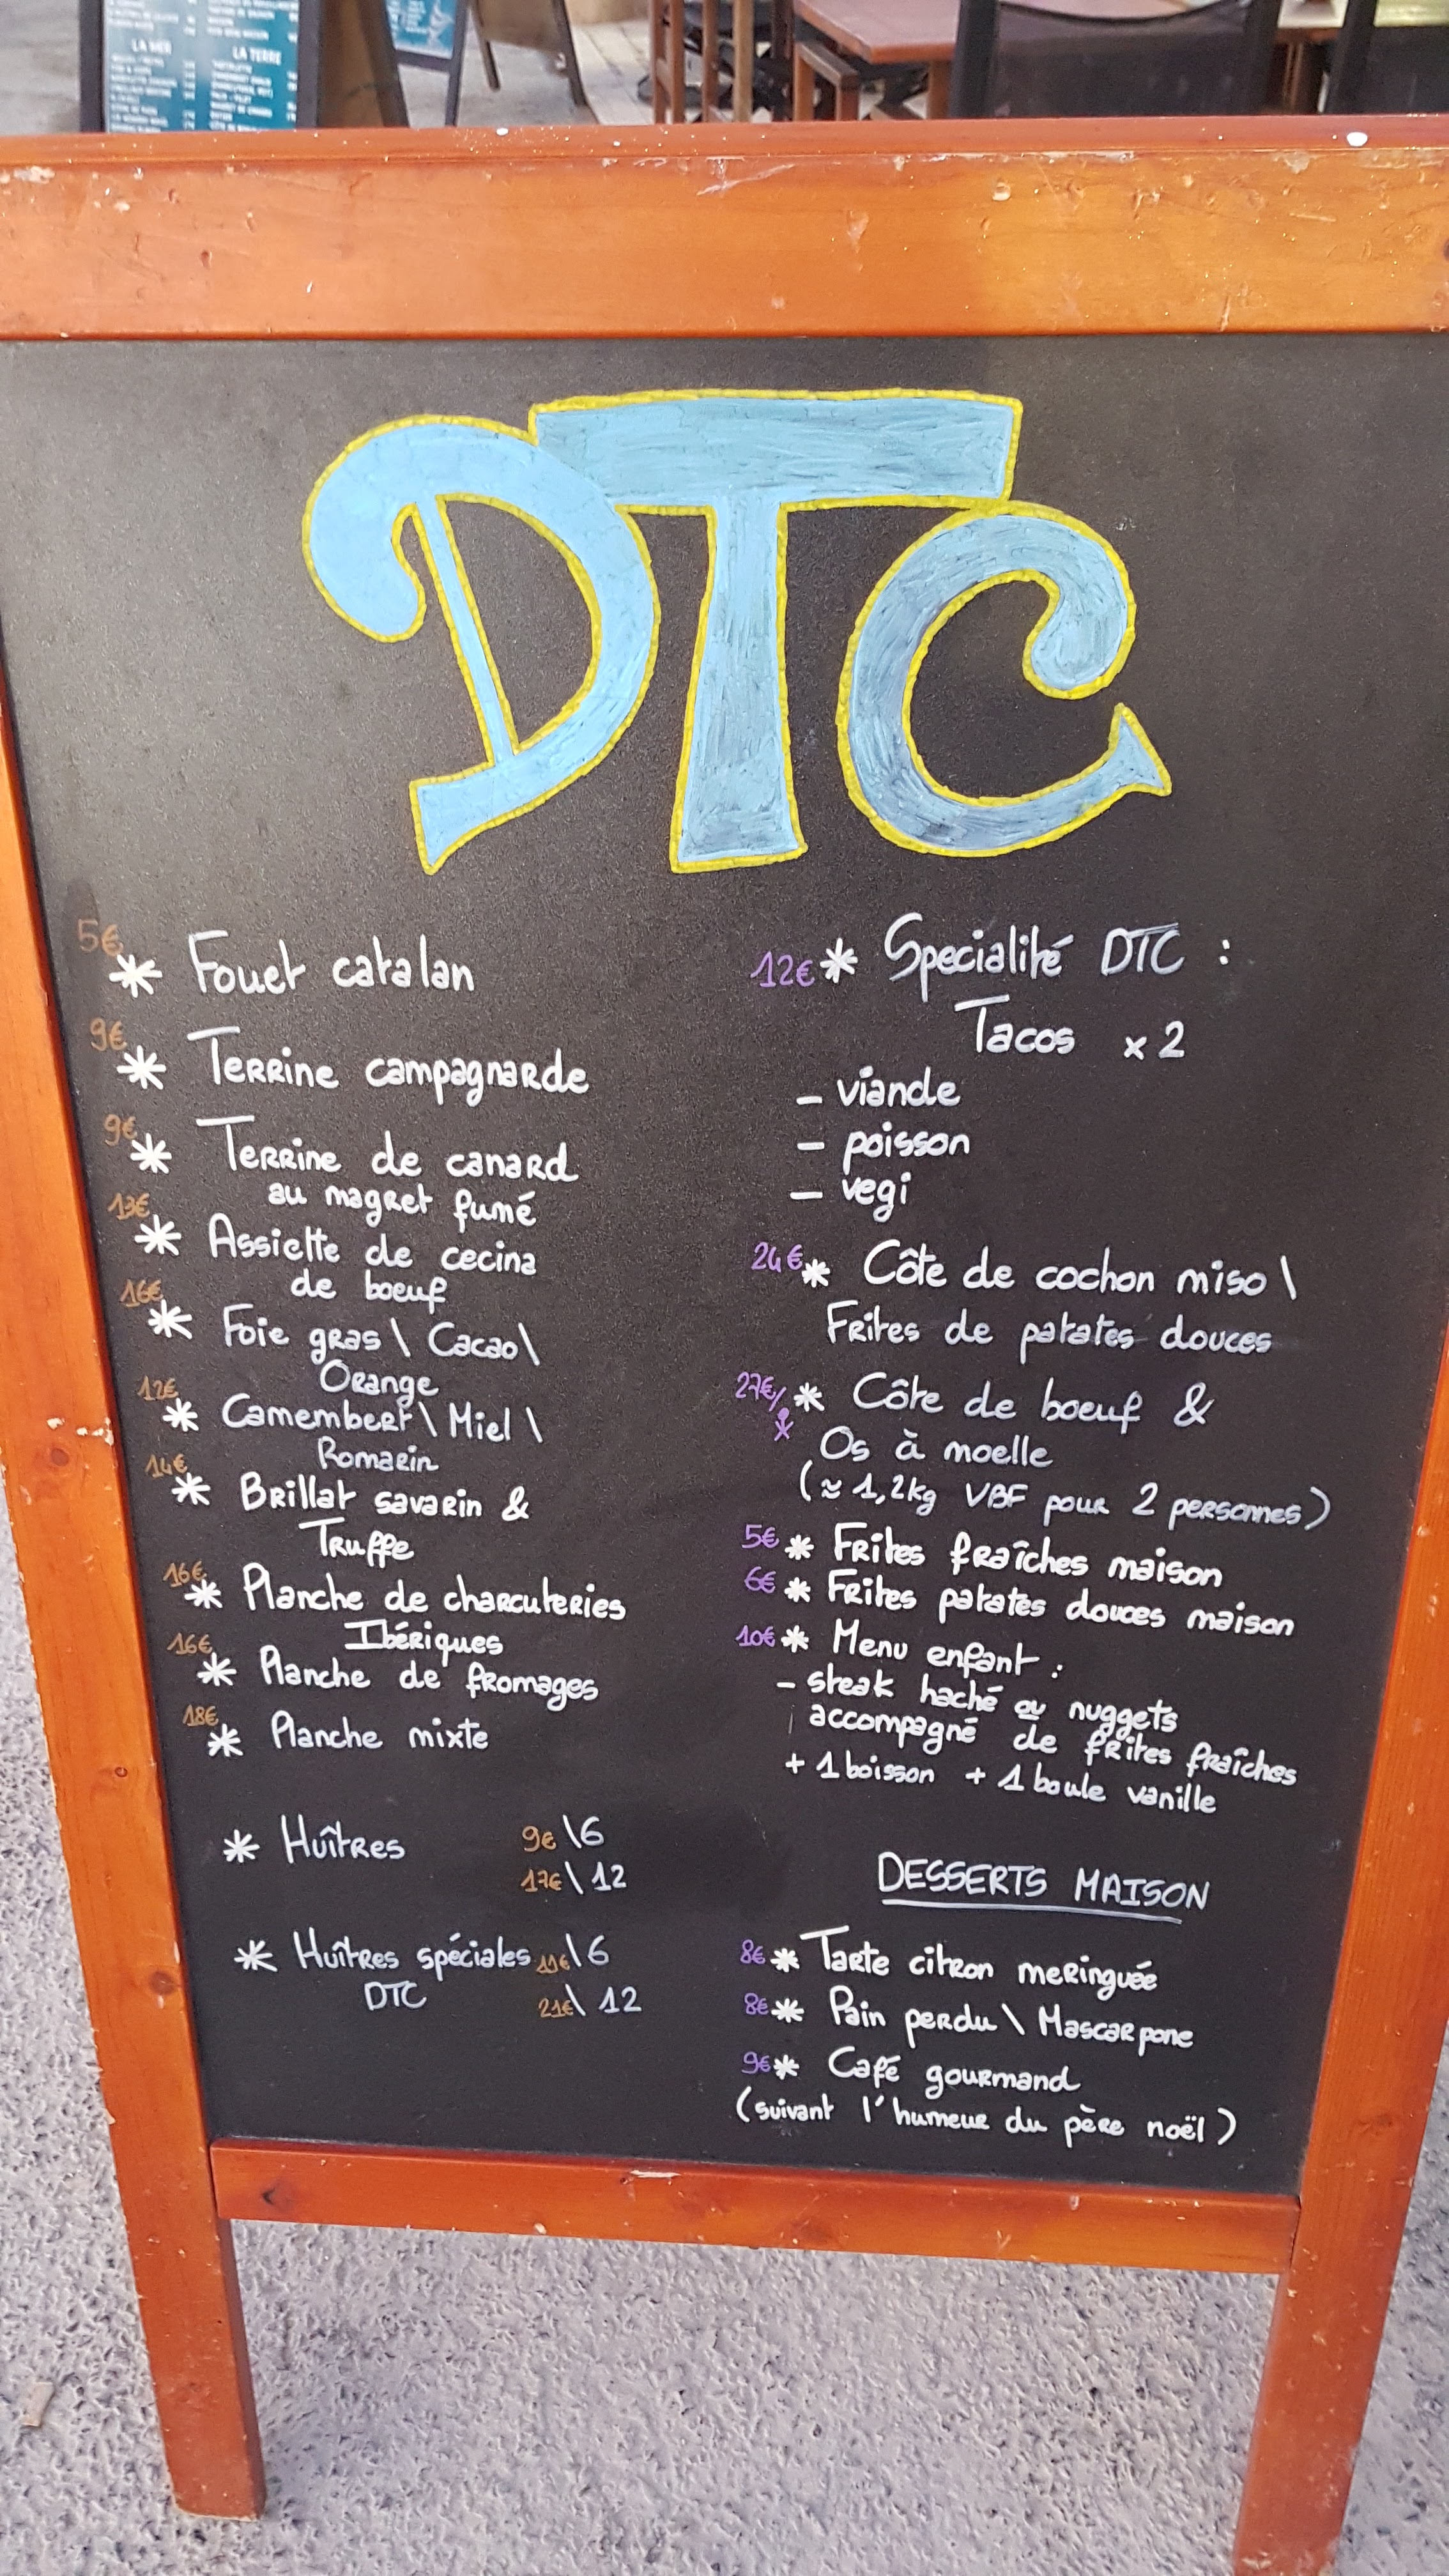 LA MER
LA TERRE
DTC
5€ * Fouet catalan
9€ * Terrine campagnarde
9€ * Terrine de canard
au magret fumé
13€ * Assiette de cecina
de boeuf
16€ * Foie gras \ Cacao \
Orange
12€ * Camembert \ Miel \
Romarin
14€ * Brillat savarin &
Truffe
16€ * Planche de charcuteries
Ibériques
16€ * Planche de fromages
18€ * Planche mixte
* Huîtres 9€ \ 6
17€ \ 12
* Huîtres spéciales 11€ \ 6
DTC 21€ \ 12
12€ * Specialité DTC :
Tacos x2
- viande
- poisson
- vegi
24€ * Côte de cochon miso \
Frites de patates douces
27€/ * Côte de boeuf &
Os à moelle
(≈ 1,2kg VBF pour 2 personnes)
5€ * Frites fraîches maison
6€ * Frites patates douces maison
10€ * Menu enfant :
- steak haché ou nuggets
accompagné de frites fraîches
+ 1 boisson + 1 boule vanille
DESSERTS MAISON
8€ * Tarte citron meringuée
8€ * Pain perdu \ Mascarpone
9€ * Café gourmand
(suivant l'humeur du père noël)